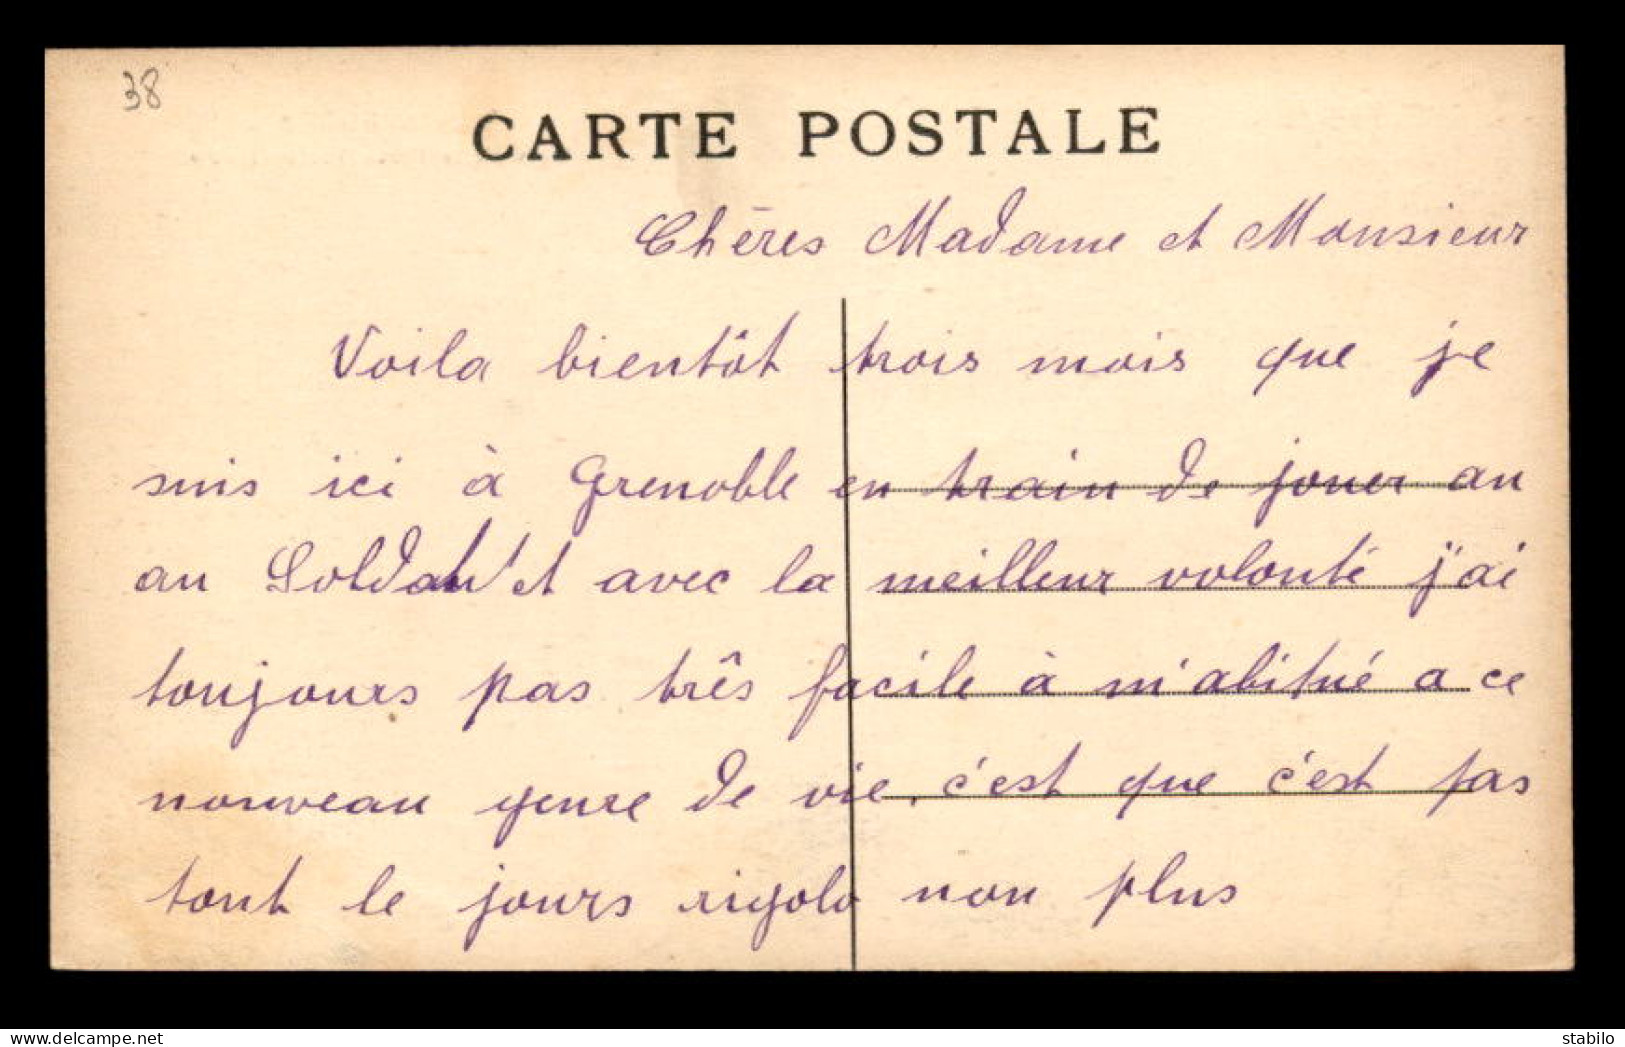 38
CARTE POSTALE
Chères Madame et Monsieur
Voila bientôt trois mois que je
suis ici à Grenoble en train de jouer au
au Soldat et avec la meilleur volonté j'ai
toujours pas três facile à m'abitué a ce
nouveau genre de vie, c'est que c'est pas
tout le jours rigolo non plus
delcampe.net
stabilo